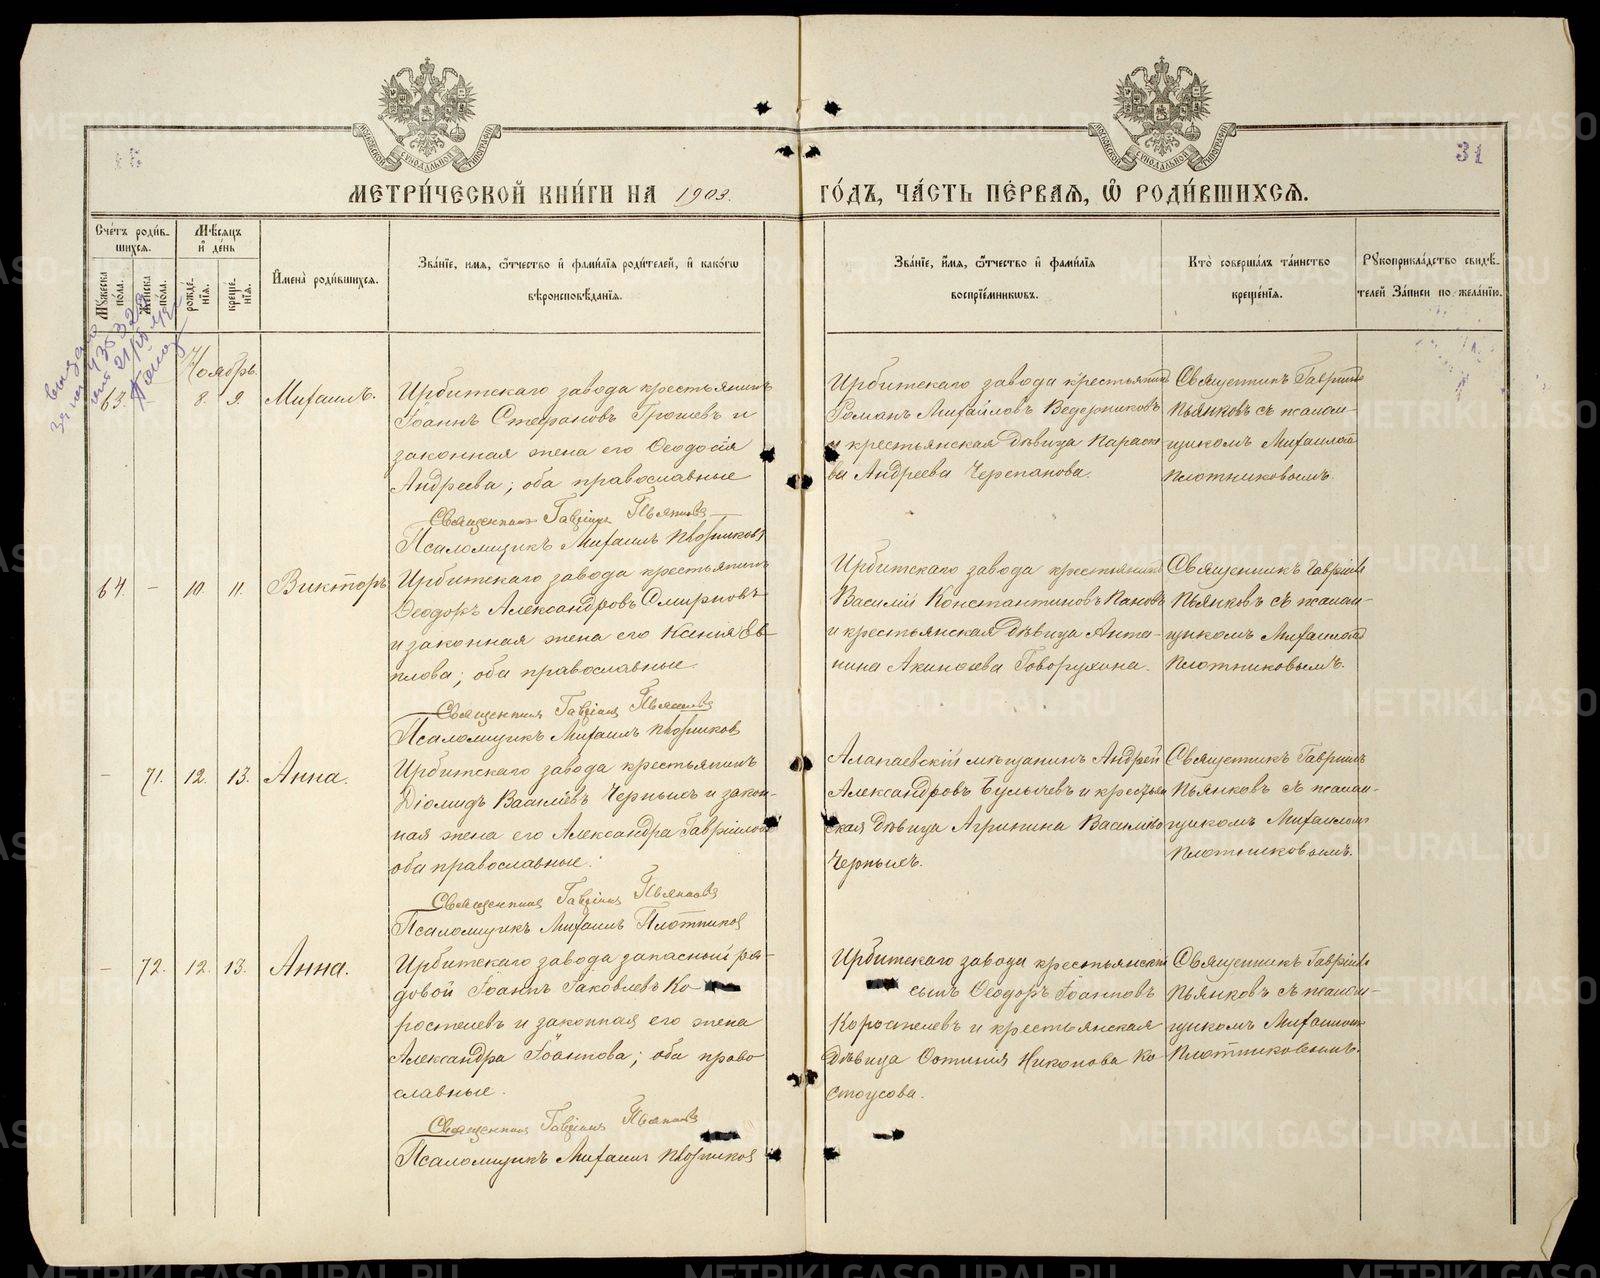 МОСКОВСКОЙ СѴНОДАЛЬНОЙ ТИПОГРАФІИ
МОСКОВСКОЙ СѴНОДАЛЬНОЙ ТИПОГРАФІИ
31
МЕТРИ́ЧЕСКОЙ КНИ́ГИ НА 1903.
ГО́ДЪ, ЧА́СТЬ ПЕ́РВАЯ, Ѽ РОДИ́ВШИХСЯ.
Сче́тъ роди́в-
шихся.
Му́жеска по́ла.
Же́нска по́ла.
Мѣ́сяцъ и҆ де́нь
рожде́-нія.
креще́-нія.
И҆мена̀ роди́вшихся.
Зва́ніе, и҆мя, ѻ҆́тчество и҆ фами́лія роди́телей, и҆ како́гѡ
вѣроисповѣ́данія.
Зва́ніе, и҆́мя, ѻ҆́тчество и҆ фами́лія
воспріе́мникѡвъ.
Кто̀ соверша́лъ та́инство
креще́нія.
Рꙋкоприкла́дство свидѣ́-
телей за́писи по жела́нію.
выдано
Ноябрь.
63. 8. 9. Михаилъ.
Ирбитскаго завода крестьянинъ
Іоаннъ Стефановъ Грошевъ и
законная жена его Ѳеодосія
Андреева; оба православные
Священникъ Гавріилъ Пьянковъ
Псаломщикъ Михаилъ Плотниковъ
Ирбитскаго завода крестьянинъ
Романъ Михайловъ Ведерниковъ
и крестьянская дѣвица Параске
ва Андреева Черепанова.
Священникъ Гавріилъ
Пьянковъ съ псалом-
щикомъ Михаиломъ
Плотниковымъ.
64. – 10. 11. Викторъ
Ирбитскаго завода крестьянинъ
Ѳеодоръ Александровъ Смирновъ
и законная жена его Ксенія Ев-
плова; оба православные.
Священникъ Гавріилъ Пьянковъ
Псаломщикъ Михаилъ Плотниковъ
Ирбитскаго завода крестьянинъ
Василій Константиновъ Пановъ
и крестьянская дѣвица Анто-
нина Акинѳиева Говорухина.
Священникъ Гавріилъ
Пьянковъ съ псалом-
щикомъ Михаиломъ
Плотниковымъ.
– 71. 12. 13. Анна.
Ирбитскаго завода крестьянинъ
Діомидъ Васильевъ Черныхъ и закон-
ная жена его Александра Гавріилова
оба православные.
Священникъ Гавріилъ Пьянковъ
Псаломщикъ Михаилъ Плотниковъ
Алапаевскій мѣщанинъ Андрей
Александровъ Булычевъ и крестьян
ская дѣвица Агрипина Васильева
Черныхъ.
Священникъ Гавріилъ
Пьянковъ съ псалом-
щикомъ Михаиломъ
Плотниковымъ.
– 72. 12. 13. Анна.
Ирбитскаго завода запасный ря-
довой Іоаннъ Іаковлевъ Ко
ростелевъ и законная его жена
Александра Іоаннова; оба право
славные.
Священникъ Гавріилъ Пьянковъ
Псаломщикъ Михаилъ Плотниковъ
Ирбитскаго завода крестьянскій
сынъ Ѳеодоръ Іоанновъ
Коростелевъ и крестьянская
дѣвица Фотинія Никонова Ко
стоусова.
Священникъ Гавріилъ
Пьянковъ съ псалом-
щикомъ Михаиломъ
Плотниковымъ.
METRIKI.GASO-URAL.RU